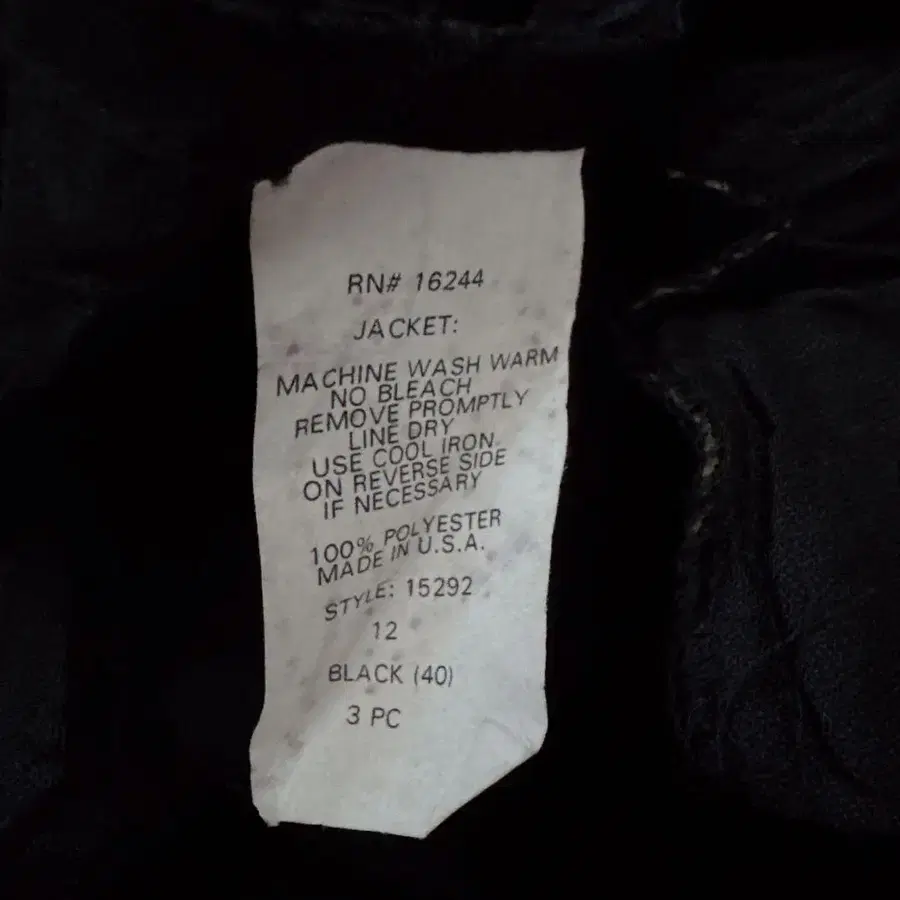 RN# 16244
JACKET:
MACHINE WASH WARM
NO BLEACH
REMOVE PROMPTLY
LINE DRY
USE COOL IRON
ON REVERSE SIDE
IF NECESSARY
100% POLYESTER
MADE IN U.S.A.
STYLE: 15292
12
BLACK (40)
3 PC